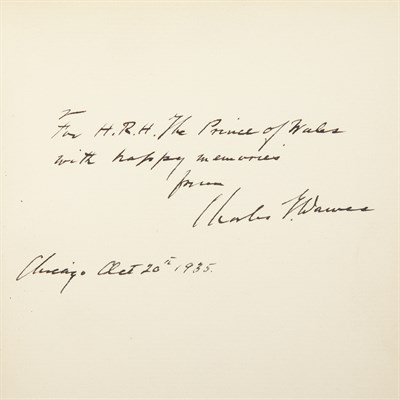 For H.R.H. The Prince of Wales
with happy memories
from
Charles G. Dawes
Chicago Oct 20th 1935.